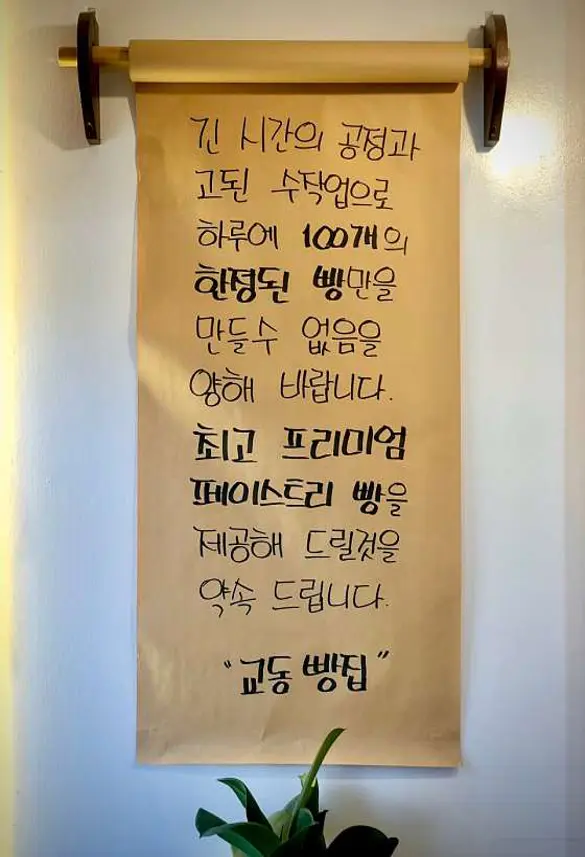 긴 시간의 공정과
고된 수작업으로
하루에 100개의
한정된 빵만을
만들수 없음을
양해 바랍니다.
최고 프리미엄
페이스트리 빵을
제공해 드릴것을
약속 드립니다.
"교동 빵집"